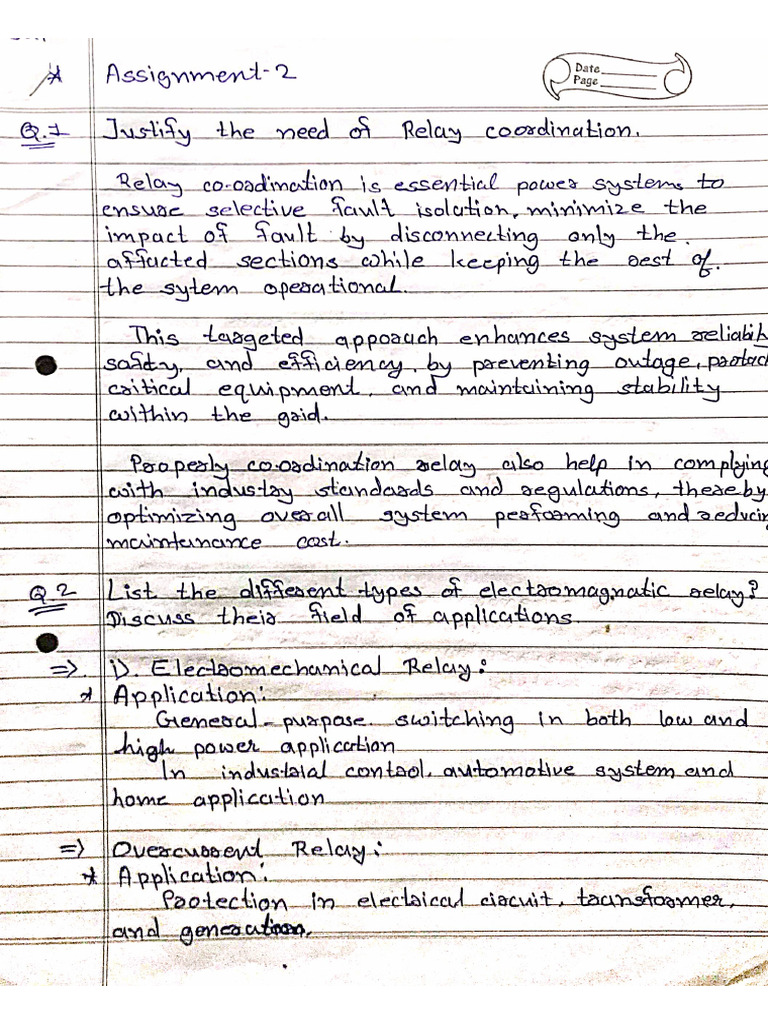 * Assignment-2
Date
Page
Q.1 Justify the need of Relay coordination.
Relay co-ordination is essential power systems to
ensure selective fault isolation, minimize the
impact of fault by disconnecting only the.
affacted sections while keeping the rest of.
the sytem operational.
This targeted apporach enhances system reliabili
safity, and efficiency, by preventing outage, protect
critical equipment, and maintaining stability
within the grid.
Properly co-ordination relay also help in complying
with industry standards and regulations, thereby
optimizing overall system performing and reducing
maintenance cost.
Q.2 List the different types of electromagnetic relay?
Discuss their field of applications.
=> 1). Electromechanical Relay:
* Application:
General-purpose switching in both low and
high power application
In industrial control, automotive system and
home application
=> Overcurrent Relay:
* Application:
Protection in electrical circuit, transformer,
and